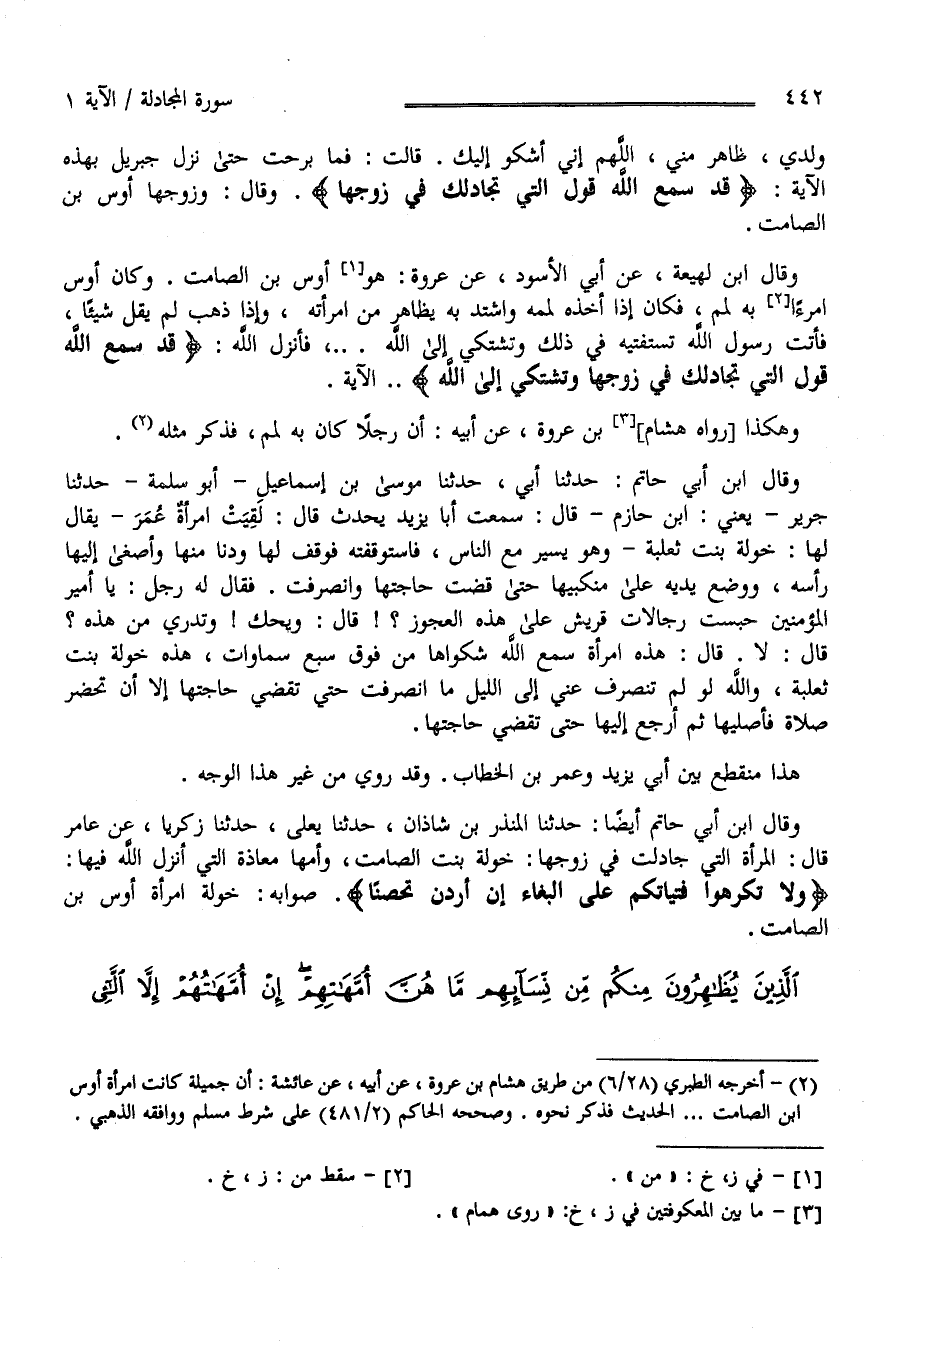 ٤٤٢ سورة المجادلة / الآية ١
ولدي ، ظاهر مني ، اللَّهم إني أشكو إليك . قالت : فما برحت حتىٰ نزل جبريل بهذه
الآية : ﴿ قد سمع اللَّه قول التي تجادلك في زوجها ﴾ . وقال : وزوجها أوس بن
الصامت .
وقال ابن لهيعة ، عن أبي الأسود ، عن عروة : هو[١] أوس بن الصامت . وكان أوس
امرءًا[٢] به لمم ، فكان إذا أخذه لممه واشتد به يظاهر من امرأته ، وإذا ذهب لم يقل شيئًا ،
فأتت رسول اللَّه تستفتيه في ذلك وتشتكي إلىٰ اللَّه . ..، فأنزل اللَّه : ﴿ قد سمع اللَّه
قول التي تجادلك في زوجها وتشتكي إلىٰ اللَّه ﴾ .. الآية .
وهكذا [رواه هشام][٣] بن عروة ، عن أبيه : أن رجلًا كان به لمم، فذكر مثله (٢) .
وقال ابن أبي حاتم : حدثنا أبي ، حدثنا موسىٰ بن إسماعيل – أبو سلمة – حدثنا
جرير – يعني : ابن حازم – قال : سمعت أبا يزيد يحدث قال : لَقِيَتْ امرأةٌ عُمَرَ – يقال
لها : خولة بنت ثعلبة – وهو يسير مع الناس ، فاستوقفته فوقف لها ودنا منها وأصغىٰ إليها
رأسه ، ووضع يديه علىٰ منكبيها حتىٰ قضت حاجتها وانصرفت . فقال له رجل : يا أمير
المؤمنين حبست رجالات قريش علىٰ هذه العجوز ؟ ! قال : ويحك ! وتدري من هذه ؟
قال : لا . قال : هذه امرأة سمع اللَّه شكواها من فوق سبع سماوات ، هذه خولة بنت
ثعلبة ، واللَّه لو لم تنصرف عني إلى الليل ما انصرفت حتي تقضي حاجتها إلا أن تحضر
صلاة فأصليها ثم أرجع إليها حتى تقضي حاجتها.
هذا منقطع بين أبي يزيد وعمر بن الخطاب . وقد روي من غير هذا الوجه .
وقال ابن أبي حاتم أيضًا : حدثنا المنذر بن شاذان ، حدثنا يعلى ، حدثنا زكريا ، عن عامر
قال : المرأة التي جادلت في زوجها : خولة بنت الصامت، وأمها معاذة التي أنزل اللَّه فيها :
﴿ولا تكرهوا فتياتكم على البغاء إن أردن تحصنًا﴾. صوابه : خولة امرأة أوس بن
الصامت .
ٱلَّذِينَ يُظَٰهِرُونَ مِنكُم مِّن نِّسَآئِهِم مَّا هُنَّ أُمَّهَٰتِهِمْۖ إِنْ أُمَّهَٰتُهُمْ إِلَّا ٱلَّٰٓـِٔى
(٢) – أخرجه الطبري (٦/٢٨) من طريق هشام بن عروة ، عن أبيه ، عن عائشة : أن جميلة كانت امرأة أوس
ابن الصامت ... الحديث فذكر نحوه . وصححه الحاكم (٤٨١/٢) على شرط مسلم ووافقه الذهبي .
[١] – في ز، خ : « من » . [٢] – سقط من : ز ، خ .
[٣] – ما بين المعكوفتين في ز ، خ: « روى همام » .